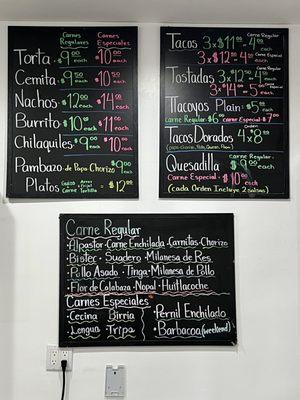 Carnes Carnes
Regulares Especiales
Torta $9.00 each $10.00 each
Cemita $9.50 each $10.50 each
Nachos $12.00 each $14.00 each
Burrito $10.00 each $11.00 each
Chilaquiles $9.00 each $10.00 each
Pambazo de Papa Chorizo $9.00 each
Platos Arroz Frijol Carne Tortilla = $12.00
Tacos 3x$11.00 - 4.00 each Carne Regular
3x$12.00 - 4.00 each Carne Especial
Tostadas Carne Regular
Tlacoyos Plain $5.00 each
Carne Regular $6.00 Carne Especial $7.00
Tacos Dorados 4x$8.00
Quesadilla Carne Regular $9.00 each
Carne Especial $10.00 each
(Cada Orden Incluye 2 salsas)
Carne Regular
•Alpastor •Carne Enchilada •Carnitas •Chorizo
•Bistec •Suadero •Milanesa de Res
•Pollo Asado •Tinga •Milanesa de Pollo
•Flor de Calabaza •Nopal •Huitlacoche
Carnes Especiales
•Cecina •Birria •Pernil Enchilado
•Lengua •Tripa •Barbacoa (weekend)